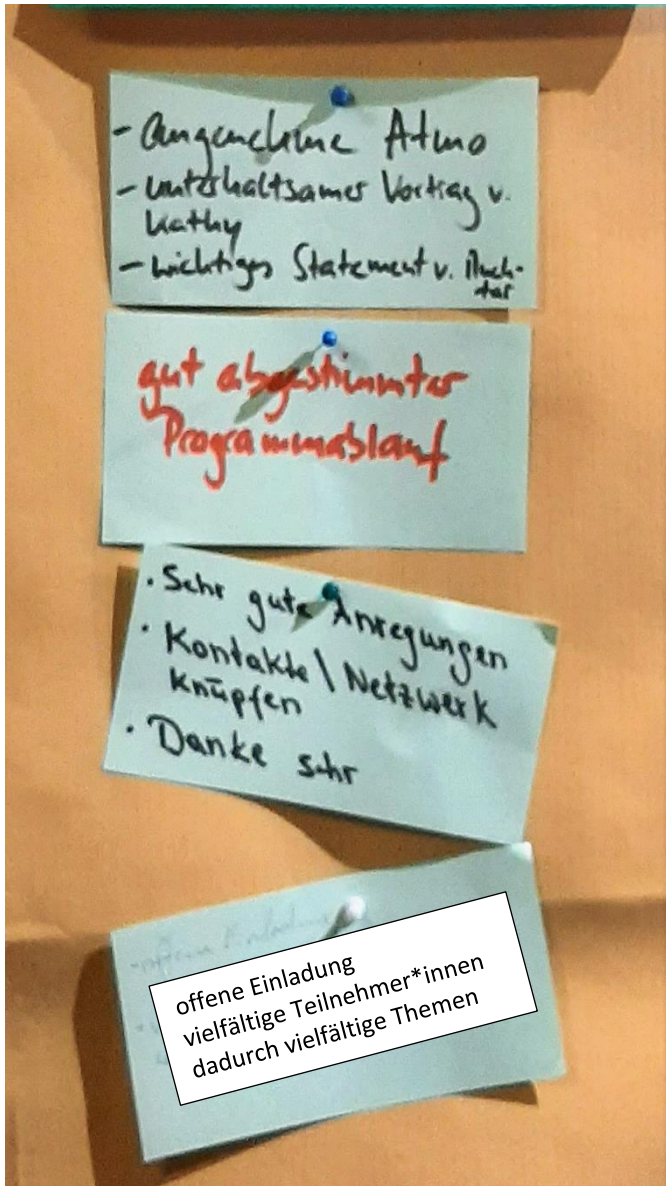 - angenehme Atmo
- unterhaltsamer Vortrag v.
Kathy
- wichtiges Statement v. Much-
tar
gut abgestimmter
Programmablauf
· Sehr gute Anregungen
· Kontakte \ Netzwerk
knüpfen
· Danke sehr
- offene Einladung
offene Einladung
vielfältige Teilnehmer*innen
dadurch vielfältige Themen